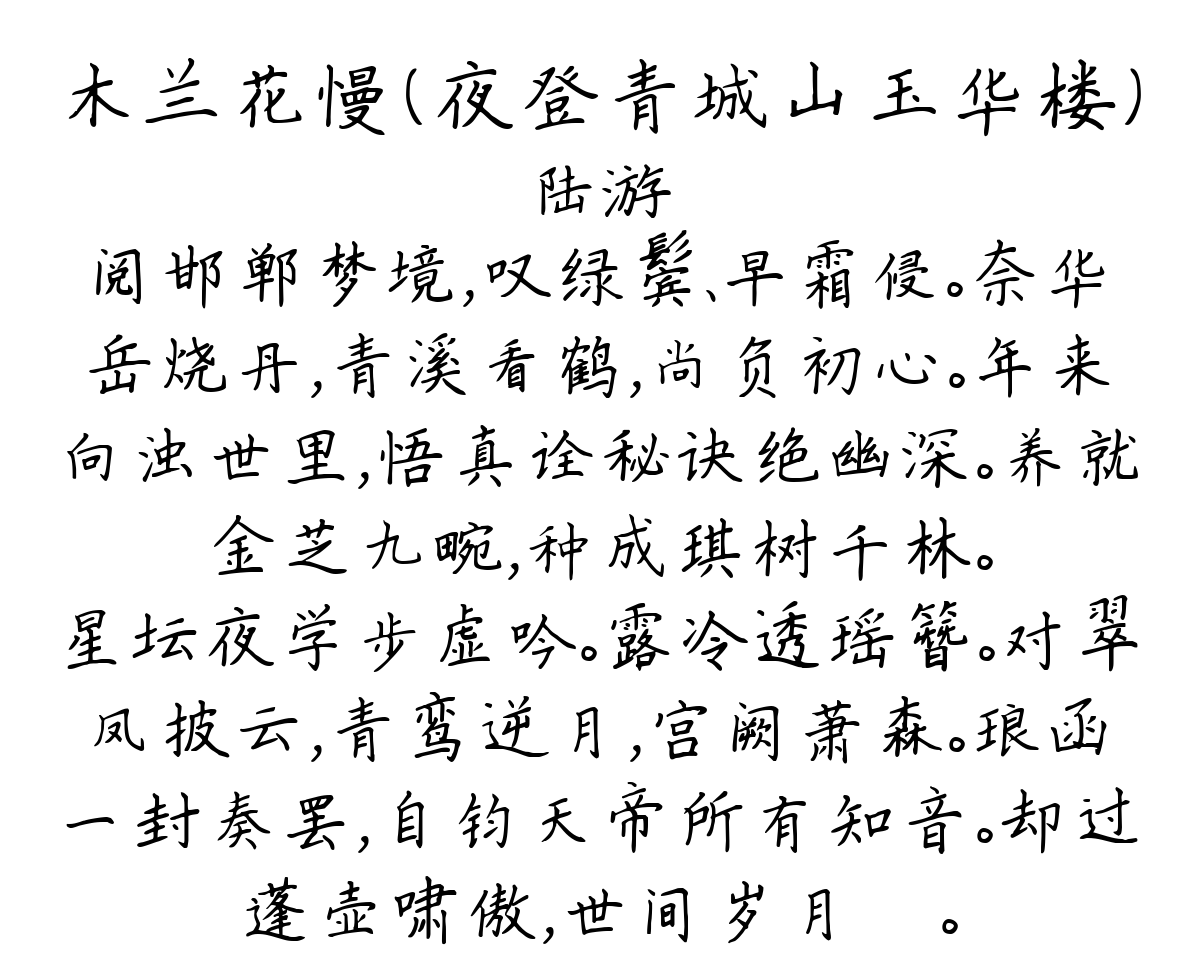 木兰花慢(夜登青城山玉华楼)
陆游
阅邯郸梦境,叹绿鬓、早霜侵。奈华
岳烧丹,青溪看鹤,尚负初心。年来
向浊世里,悟真诠秘诀绝幽深。养就
金芝九畹,种成琪树千林。
星坛夜学步虚吟。露冷透瑶簪。对翠
凤披云,青鸾逆月,宫阙萧森。琅函
一封奏罢,自钧天帝所有知音。却过
蓬壶啸傲,世间岁月 。